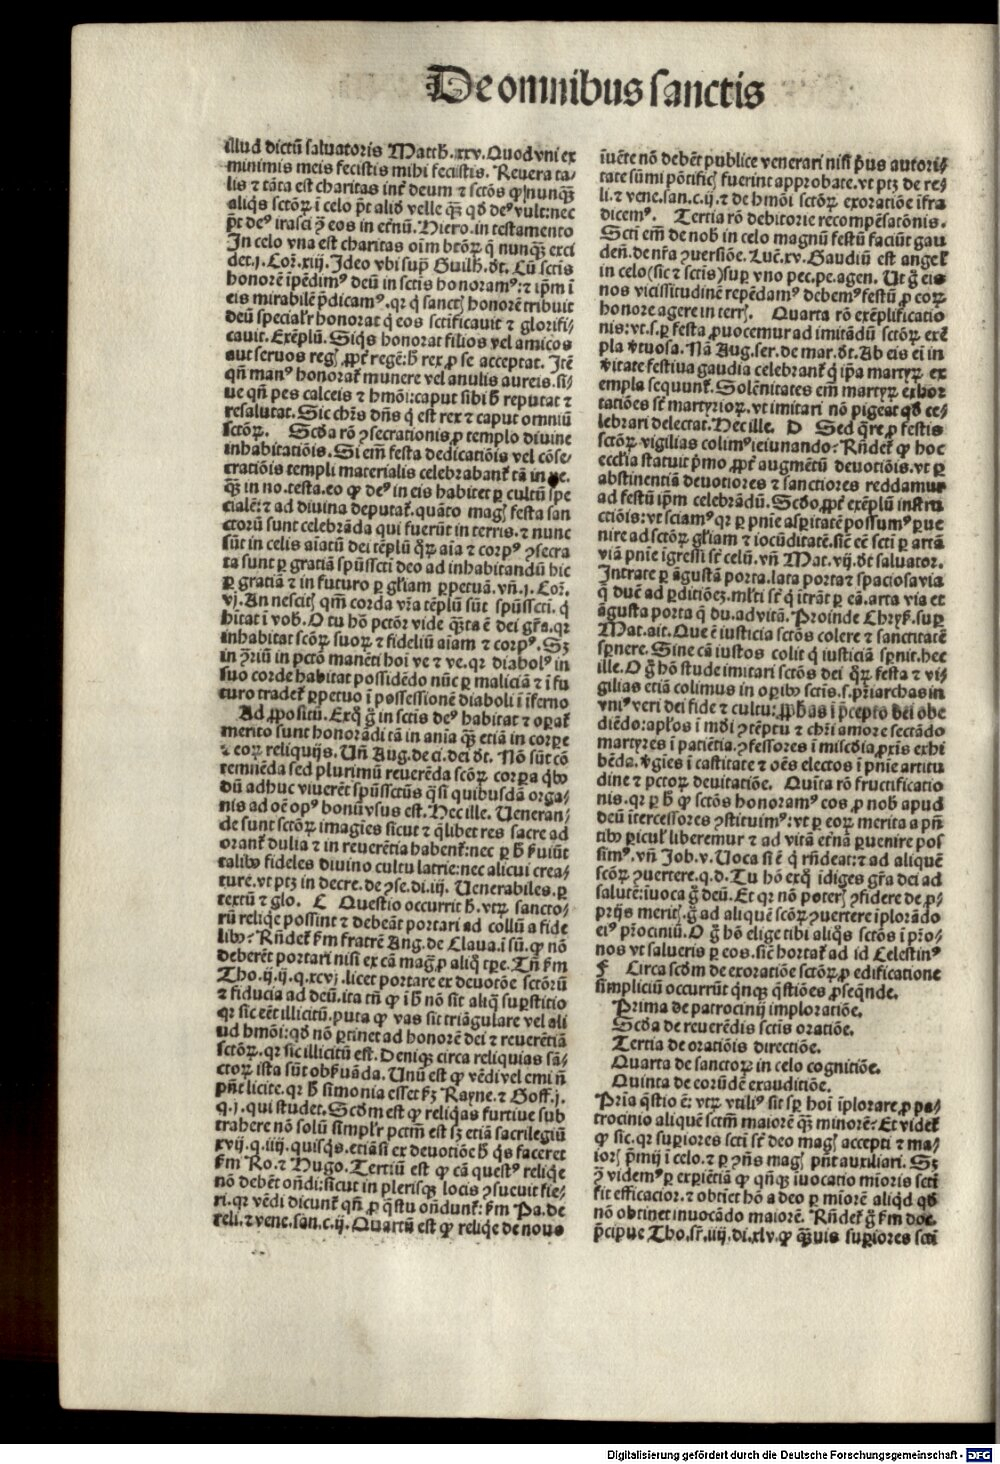 De omnibus sanctis
illud dictū saluatoris Matth. xxv. Quod vni ex
minimis meis fecistis mihi fecistis. Reuera ta-
lis ⁊ tāta est charitas int̄ deum ⁊ sctōs ꝙ nunqꝫ
aliq̄s sctōꝝ ī celo p̄t aliđ velle qꝫ qđ deꝰ vult: nec
p̄t deꝰ irasci ꝯ̄ eos in et̄nū. Hiero. in testamento
In celo vna est charitas oīm btōꝝ q̄ nunqꝫ exci
det. j. Coꝛ. xiij. Ideo vbi sup̄ Guilħ. đt. Cū sctis
honorē īpēdimꝰ deū in sctis honoramꝰ: ⁊ ip̄m ī
eis mirabilē p̄dicamꝰ. qꝛ q̇ sanctꝭ honorē tribuit
deū specialr̄ honorat q̇ eos sctificauit ⁊ glorifi-
cauit. Exēplū. Siq̇s honorat filios vel amicos
aut seruos regꝭ ꝓpt̄ regē: ħ rex ꝓ se acceptat. Itē
qn̄ manꝰ honorat̄ munere vel anulis aureis. si-
ue qn̄ pes calceis ⁊ hmōi: caput sibi ħ reputat ⁊
resalutat. Sic chr̄s dn̄s q̇ est rex ⁊ caput omniū
sctōꝝ. Scđa rō ꝯsecrationis ꝓ templo diuine
inhabitatiōis. Si em̄ festa dedicatiōis vel cōse-
cratiōis templi materialis celebrabant̄ tā in ve.
qꝫ in no. testa. eo ꝙ deꝰ in eis habitet ꝑ cultū spe
cialē: ⁊ ad diuina deputat̄. quāto magꝭ festa san
ctorū sunt celebrāda qui fuerūt in terris. ⁊ nunc
sūt in celis aīatū dei tēplū q̄ꝝ aīa ⁊ corpꝰ ꝯsecra
ta sunt ꝑ gratiā spūssctī deo ad inhabitandū hic
ꝑ gratiā ⁊ in futuro ꝑ gliam ꝑpetuā. vn̄. j. Coꝛ.
vj. An nescitꝭ qm̄ corda vr̄a tēplū sūt spūssctī. q̇
hītat ī vob̄. O tu hō pctōr vide q̄ꝫta ē dei gr̄a. qꝛ
inhabitat scōꝝ suoꝝ ⁊ fideliū aīam ⁊ corpꝰ. Sꝫ
in ꝯ̄riū in pctō manēti hoī ve ⁊ ve. qꝛ diabolꝰ in
suo corde habitat possidēdo nūc ꝑ maliciā ⁊ ī fu
turo tradet̄ ꝑpetuo ī possessionē diaboli ī īferno
Ad ꝓpositū. Exq̇ ḡ in sctis deꝰ habitat ⁊ oꝑat̄
merito sunt honorādi tā in aīa qꝫ etiā in corpe
⁊ eoꝝ reliquijs. Un̄ Aug. de ci. dei đt. Nō sūt cō
temnēda sed plurimū reuerēda scōꝝ corꝑa q̇bꝰ
dū adhuc viuerēt spūssctūs q̄si quibusdā orga-
nis ad oē opꝰ bonū vsus est. Hec ille. Ueneran-
de sunt sctōꝝ imagīes sicut ⁊ q̄libet res sacre ad
orant̄ dulia ⁊ in reuerētia habent̄: nec ꝑ ħ ẜuiūt
talibꝰ fideles diuino cultu latrie: nec alicui crea-
ture. vt ptꝫ in decre. de ꝯse. di. iij. Uenerabiles. ꝑ
textū ⁊ glo. C Questio occurrit ħ. vtꝝ sancto-
rū reliq̄e possint ⁊ debeāt portari ad collū a fide
libꝰ? Rn̄det̄ ẜm fratrē Ang. de Claua. ī sū. ꝙ nō
deberēt portari nisi ex cā maḡ ꝓ aliq̄ tp̄e. Tn̄ ẜm
Tho. ij. ij. q. xcvj. licet portare ex deuotōe sctōrū
⁊ fiducia ad deū. ita tn̄ ꝙ ī ħ nō sit aliq̄ suꝑstitio
qꝛ sic eēt illicitū. puta ꝙ vas sit triāgulare vel ali
ud hmōi: qđ nō ꝑtinet ad honorē dei ⁊ reuerētiā
sctōꝝ. qꝛ sic illicitū est. Deniqꝫ circa reliquias sā-
ctoꝝ ista sūt obẜuāda. Unū est ꝙ vēdi vel emi nō
pn̄t licite. qꝛ ħ simonia esset ẜꝫ Rayne. ⁊ Goff. j.
q. j. qui studet. Scđm est ꝙ reliq̄as furtiue sub
trahere nō solū simplr̄ pctm̄ est sꝫ etiā sacrilegiū
xvij. q. iiij. quisq̇s. etiāsi ex deuotiōe ħ q̇s faceret
ẜm Ro. ⁊ Hugo. Tertiū est ꝙ cā questꝰ reliq̄e
nō debēt on̄di: sicut in plerisqꝫ locis ꝯsueuit fie-
ri. qꝛ vēdi dicunt̄ qn̄ ꝓ q̄stu on̄dunt̄: ẜm Pa. de
reli. ⁊ vene. san. c. ij. Quartū est ꝙ reliq̄e de nouo
īuēte nō debēt publice venerari nisi p̄us autori-
tate sūmi pōtificꝭ fuerint approbate. vt ptꝫ de re-
li. ⁊ vene. san. c. ij. ⁊ de hmōi sctōꝝ exoratiōe īfra
dicemꝰ. Tertia rō debitorie recompēsatōnis.
Scti em̄ de nob̄ in celo magnū festū faciūt gau
deñ. de nr̄a ꝯuersiōe. Luc̄. xv. Gaudiū est angel̄
in celo (sic ⁊ sctis) suꝑ vno pec. pe. agen. Ut ḡ eis
nos vicissitudinē repēdamꝰ debemꝰ festū ꝓ eoꝝ
honore agere in terrꝭ. Quarta rō exēplificatio
nis: vt. s. ꝑ festa ꝓuocemur ad imitādū sctōꝝ exē
pla v̇tuosa. Nā Aug. ser. de mar. đt. Ab eis ei in
v̇itate festiua gaudia celebrant̄ q̇ ip̄a martyꝝ ex
empla sequunt̄. Solēnitates em̄ martyꝝ exhor
tatiōes st̄ martyrioꝝ. vt imitari nō pigeat qđ ce-
lebrari delectat. Hec ille. D Sed q̄re ꝓ festis
sctōꝝ vigilias colimꝰ ieiunando? Rn̄det̄ ꝙ hoc
ecclīa statuit p̄mo ꝓpt̄ augmētū deuotiōis. vt ꝑ
abstinentiā deuotiores ⁊ sanctiores reddamur
ad festū ip̄m celebrādū. Scđo ꝓpt̄ exēplū instru
ctiōis: vt sciamꝰ qꝛ ꝑ pn̄ie asꝑitatē possumꝰ ꝑue
nire ad sctōꝝ gliam ⁊ iocūditatē. sic̄ ⁊ scti ꝑ artā
viā pn̄ie īgressi st̄ celū. vn̄ Mat. vij. đt saluator.
Intrate ꝑ āgustā porta. lata porta ⁊ spaciosa via
q̄ duc̄ ad ꝑditiōeꝫ. ml̄ti st̄ q̇ ītrāt ꝑ eā. arta via et
āgusta porta q̄ du. ad vitā. Proinde Chryẜ. suꝑ
Mat. ait. Que ē iusticia sctōs colere ⁊ sanctitatē
sꝑnere. Sine cā iustos colit q̇ iusticiā sꝑnit. hec
ille. O ḡ hō stude imitari sctōs dei q̄ꝝ festa ⁊ vi-
gilias etiā colimus in oꝑibꝰ sctis. s. p̄riarchas in
vniꝰ veri dei fide ⁊ cultu: ꝓp̄has ī p̄cepto dei obe
diēdo: apl̄os ī mūdi ꝯtēptu ⁊ chr̄i amore sectādo
martyres ī patiētia. ꝯfessores ī miscđia ꝓxīs exhi
bēda. v̇gies ī castitate ⁊ oēs electos ī pn̄ie artitu
dine ⁊ pctoꝝ deuitatiōe. Quīta rō fructificatio
nis. qꝛ ꝑ ħ ꝙ sctōs honoramꝰ eos ꝓ nob̄ apud
deū ītercessores ꝯstituimꝰ: vt ꝑ eoꝝ merita a pn̄
tibꝰ ꝑicul̄ liberemur ⁊ ad vitā et̄nā ꝑuenire pos
simꝰ. vn̄ Job. v. Uoca si ē q̇ rn̄deat: ⁊ ad aliquē
scōꝝ ꝯuertere. q. d. Tu hō exq̇ īdiges gr̄a dei ad
salutē: īuoca ḡ deū. Et qꝛ nō poterꝭ ꝯfidere de ꝓ-
prijs meritꝭ. ḡ ad aliquē scōꝝ ꝯuertere īplorādo
eiꝰ pr̄ociniū. O ḡ hō elige tibi aliq̇s sctōs ī pr̄o-
nos vt salueris ꝑ eos. sic̄ hortat̄ ad id Celestinꝰ
F Circa scđm de exoratiōe sctōꝝ ꝓ edificatione
simpliciū occurrūt q̇nqꝫ q̄stiōes ꝓseq̄nde.
Prima de patrocinij imploratiōe.
Scđa de reuerēdis sctis oratiōe.
Tertia de oratiōis directiōe.
Quarta de sanctoꝝ in celo cognitiōe.
Quinta de eorūdē exauditiōe.
Pria q̄stio ē: vtꝝ vtiliꝰ sit sꝑ hoī īplorare ꝓ pa-
trocinio aliquē sctm̄ maiorē qꝫ minorē? Et videt̄
ꝙ sic. qꝛ suꝑiores scti st̄ deo magꝭ accepti ⁊ ma-
iorꝭ p̄mij ī celo. ⁊ ꝑ ꝯn̄s magꝭ pn̄t auxiliari. Sꝫ
ꝯ̄ videmꝰ ꝑ exꝑiētiā ꝙ qn̄qꝫ iuocatio mioris scti
fit efficacior. ⁊ obtiet hō a deo ꝑ miorē aliq̇d qđ
nō obtinet inuocādo maiorē. Rn̄det̄ ḡ ẜm doc.
p̄cipue Tho. st̄. iiij. di. xlv. ꝙ qꝫuis suꝑiores scti
Digitalisierung gefördert durch die Deutsche Forschungsgemeinschaft - DFG